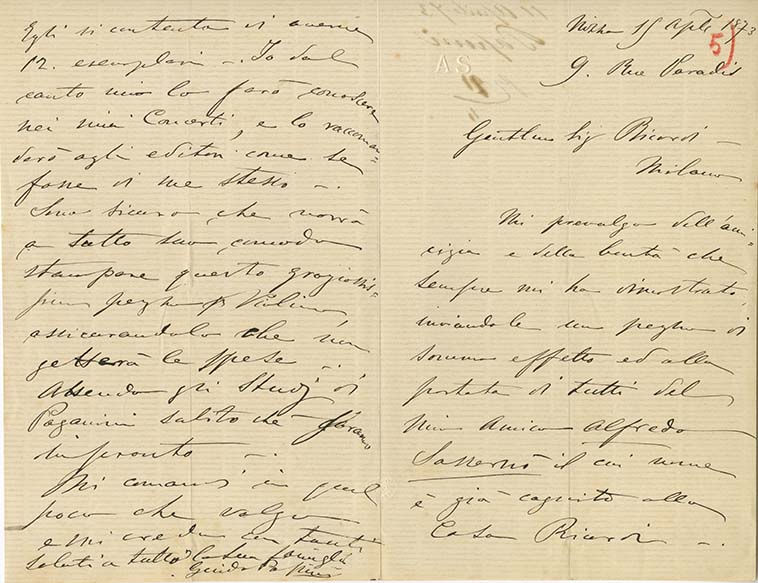 Nizza 15 Aple 1873
5)
9. Rue Paradis
Gentilmo Sig Ricordi -
Milano
Mi prevalgo dell'ami=
cizia e della bontà che
sempre mi ha dimostrato,
inviandole un pezzo di
sommo effetto ed alla
portata di tutti del
mio amico Alfredo
il cui nome
è già cognito alla
Casa Ricordi -.
Egli si contenta di averne
12. esemplari -. Io dal
canto mio lo farò conoscere
nei miei Concerti, e lo raccoman=
derò agli editori come se
fosse di me stesso -.
Sono sicuro che vorrà
a tutto suo comodo
stampare questo graziosis=
simo pezzo p Violino,
assicurandolo che non
getterà le spese -.
Attendo gli Studj di
Paganini subito che saranno
in pronto -.
Mi comandi in quel
poco che valgo
e mi creda con tanti
saluti a tutta la sua famiglia
Guido
AS